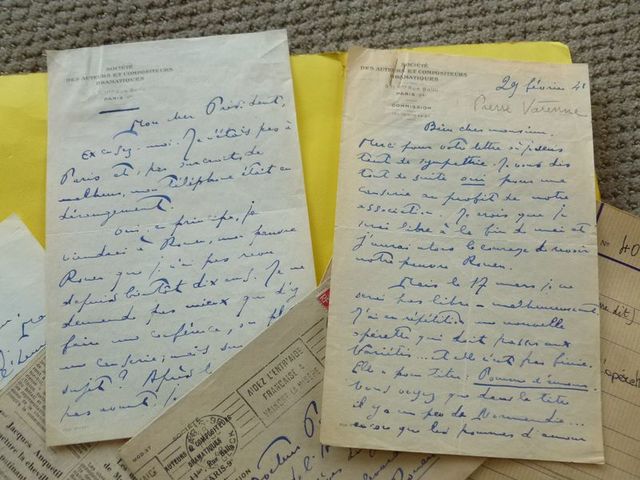 SOCIÉTÉ
DES AUTEURS ET COMPOSITEURS
DRAMATIQUES
PARIS-9e
Mon cher Président,
Excusez-moi. J'étais pas à
Paris et, pas surcroît de
malheurs, mon téléphone était en
dérangement.
Oui, en principe, je
viendrai à Rouen, mon pauvre
Rouen que je n'ai pas revu
depuis bientôt dix ans. Je ne
demande pas mieux que d'y
faire une conférence, ou plu
une causerie; mais su
sujet? Après l
pas avant, j
SOCIÉTÉ
DES AUTEURS ET COMPOSITEURS
DRAMATIQUES
PARIS-9e
COMMISSION
29 février 48
Pierre Varenne
Bien cher monsieur,
Merci pour votre lettre si pleine
tant de sympathie. Je vous dis
tout de suite oui pour une
causerie au profit de notre
association. Je crois que je
serai libre à la fin de mai et
j'aurai alors le courage de revoir
notre pauvre Rouen.
Mais le 17 mars je ne
serai pas libre, malheureusement.
J'ai en répétition une nouvelle
opérette qui doit passer aux
Variétés... Et elle n'est pas finie.
Elle a pour titre: Pomme d'amour
Vous voyez que dans le titre
il y a un peu de Normandie...
encore que les pommes d'amour
AIDEZ L'ENTR'AIDE
FRANÇAISE À
VAINCRE LA MISÈRE
SOCIÉTÉ DES
AUTEURS & COMPOSITEURS
DRAMATIQUES
PARIS-9e
Docteur P
Rouen
N° 40
dit)
Jacques Anquetil